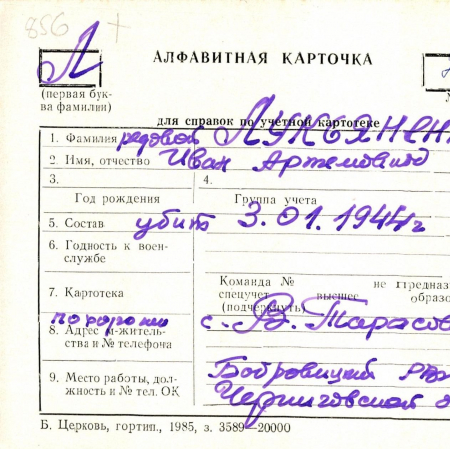 856 +
Л
АЛФАВИТНАЯ КАРТОЧКА
(первая бук-
ва фамилии)
для справок по учетной картотеке
1. Фамилия рядовой ЛУКЬЯНЕН
2. Имя, отчество Иван Артемович
3. 4.
Год рождения Группа учета
5. Состав убит 3.01.1944г
6. Годность к воен-
службе
Команда № не предназ
7. Картотека спецучет высшее образо
(подчеркнуть)
похоронен с. Тарасов
8. Адрес жительства и № телефона
9. Место работы, дол-
жность и № тел. ОК
Бобровицкий РВ
Черниговской о
Б. Церковь, гортип., 1985, з. 3589—20000